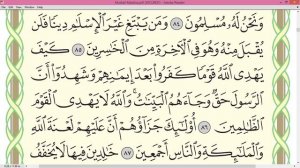 وَنَحْنُ لَهُۥ مُسْلِمُونَ ٨٤ وَمَن يَبْتَغِ غَيْرَ ٱلْإِسْلَٰمِ دِينًا فَلَن
يُقْبَلَ مِنْهُ وَهُوَ فِى ٱلْءَاخِرَةِ مِنَ ٱلْخَٰسِرِينَ ٨٥ كَيْفَ
يَهْدِى ٱللَّهُ قَوْمًا كَفَرُوا۟ بَعْدَ إِيمَٰنِهِمْ وَشَهِدُوٓا۟ أَنَّ
ٱلرَّسُولَ حَقٌّ وَجَآءَهُمُ ٱلْبَيِّنَٰتُ ۚ وَٱللَّهُ لَا يَهْدِى ٱلْقَوْمَ
ٱلظَّٰلِمِينَ ٨٦ أُو۟لَٰٓئِكَ جَزَآؤُهُمْ أَنَّ عَلَيْهِمْ لَعْنَةَ ٱللَّهِ
وَٱلْمَلَٰٓئِكَةِ وَٱلنَّاسِ أَجْمَعِينَ ٨٧ خَٰلِدِينَ فِيهَا لَا يُخَفَّفُ